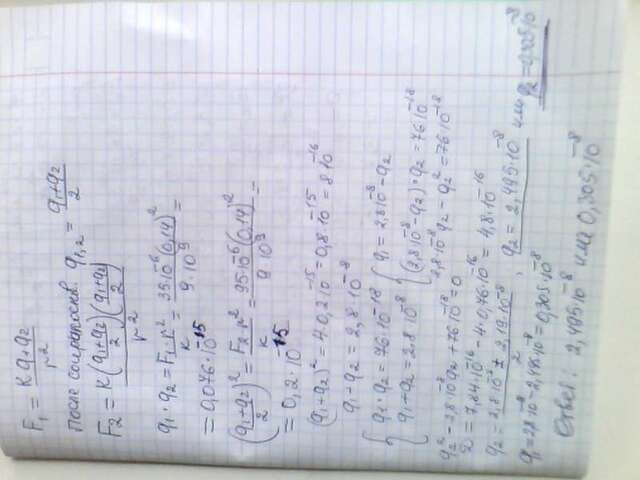 F₁ = K q₁ q₂ / r²
После соприкоснов. q₁,₂ = (q₁+q₂)/2
F₂ = K ((q₁+q₂)/2)((q₁+q₂)/2) / r²
q₁ · q₂ = F₁ r² / K = 35·10⁻⁶ (0,14)² / 9·10⁹ =
= 0,076·10⁻¹⁵
((q₁+q₂)/2)² = F₂·r² / K = 35·10⁻⁶ (0,14)² / 9·10⁹ =
= 0,2·10⁻¹⁵
(q₁+q₂)² = 4·0,2·10⁻¹⁵ = 0,8·10⁻¹⁵ = 8·10⁻¹⁶
q₁ · q₂ = 2,8·10⁻⁸
{ q₁ · q₂ = 76·10⁻¹⁸ { q₁ = 2,8·10⁻⁸ - q₂
q₁ + q₂ = 2,8·10⁻⁸ (2,8·10⁻⁸ - q₂)·q₂ = 76·10⁻¹⁸
2,8·10⁻⁸ q₂ - q₂² = 76·10⁻¹⁸
q₂² - 2,8·10⁻⁸ q₂ + 76·10⁻¹⁸ = 0
D = 7,84·10⁻¹⁶ - 4·0,76·10⁻¹⁶ = 4,8·10⁻¹⁶
q₂ = (2,8·10⁻⁸ ± 2,19·10⁻⁸) / 2 ; q₂ = 2,495·10⁻⁸ или q₂ = 0,305·10⁻⁸
q₁ = 2,8·10⁻⁸ - 2,495·10⁻⁸ = 0,305·10⁻⁸
Ответ: 2,495·10⁻⁸ или 0,305·10⁻⁸